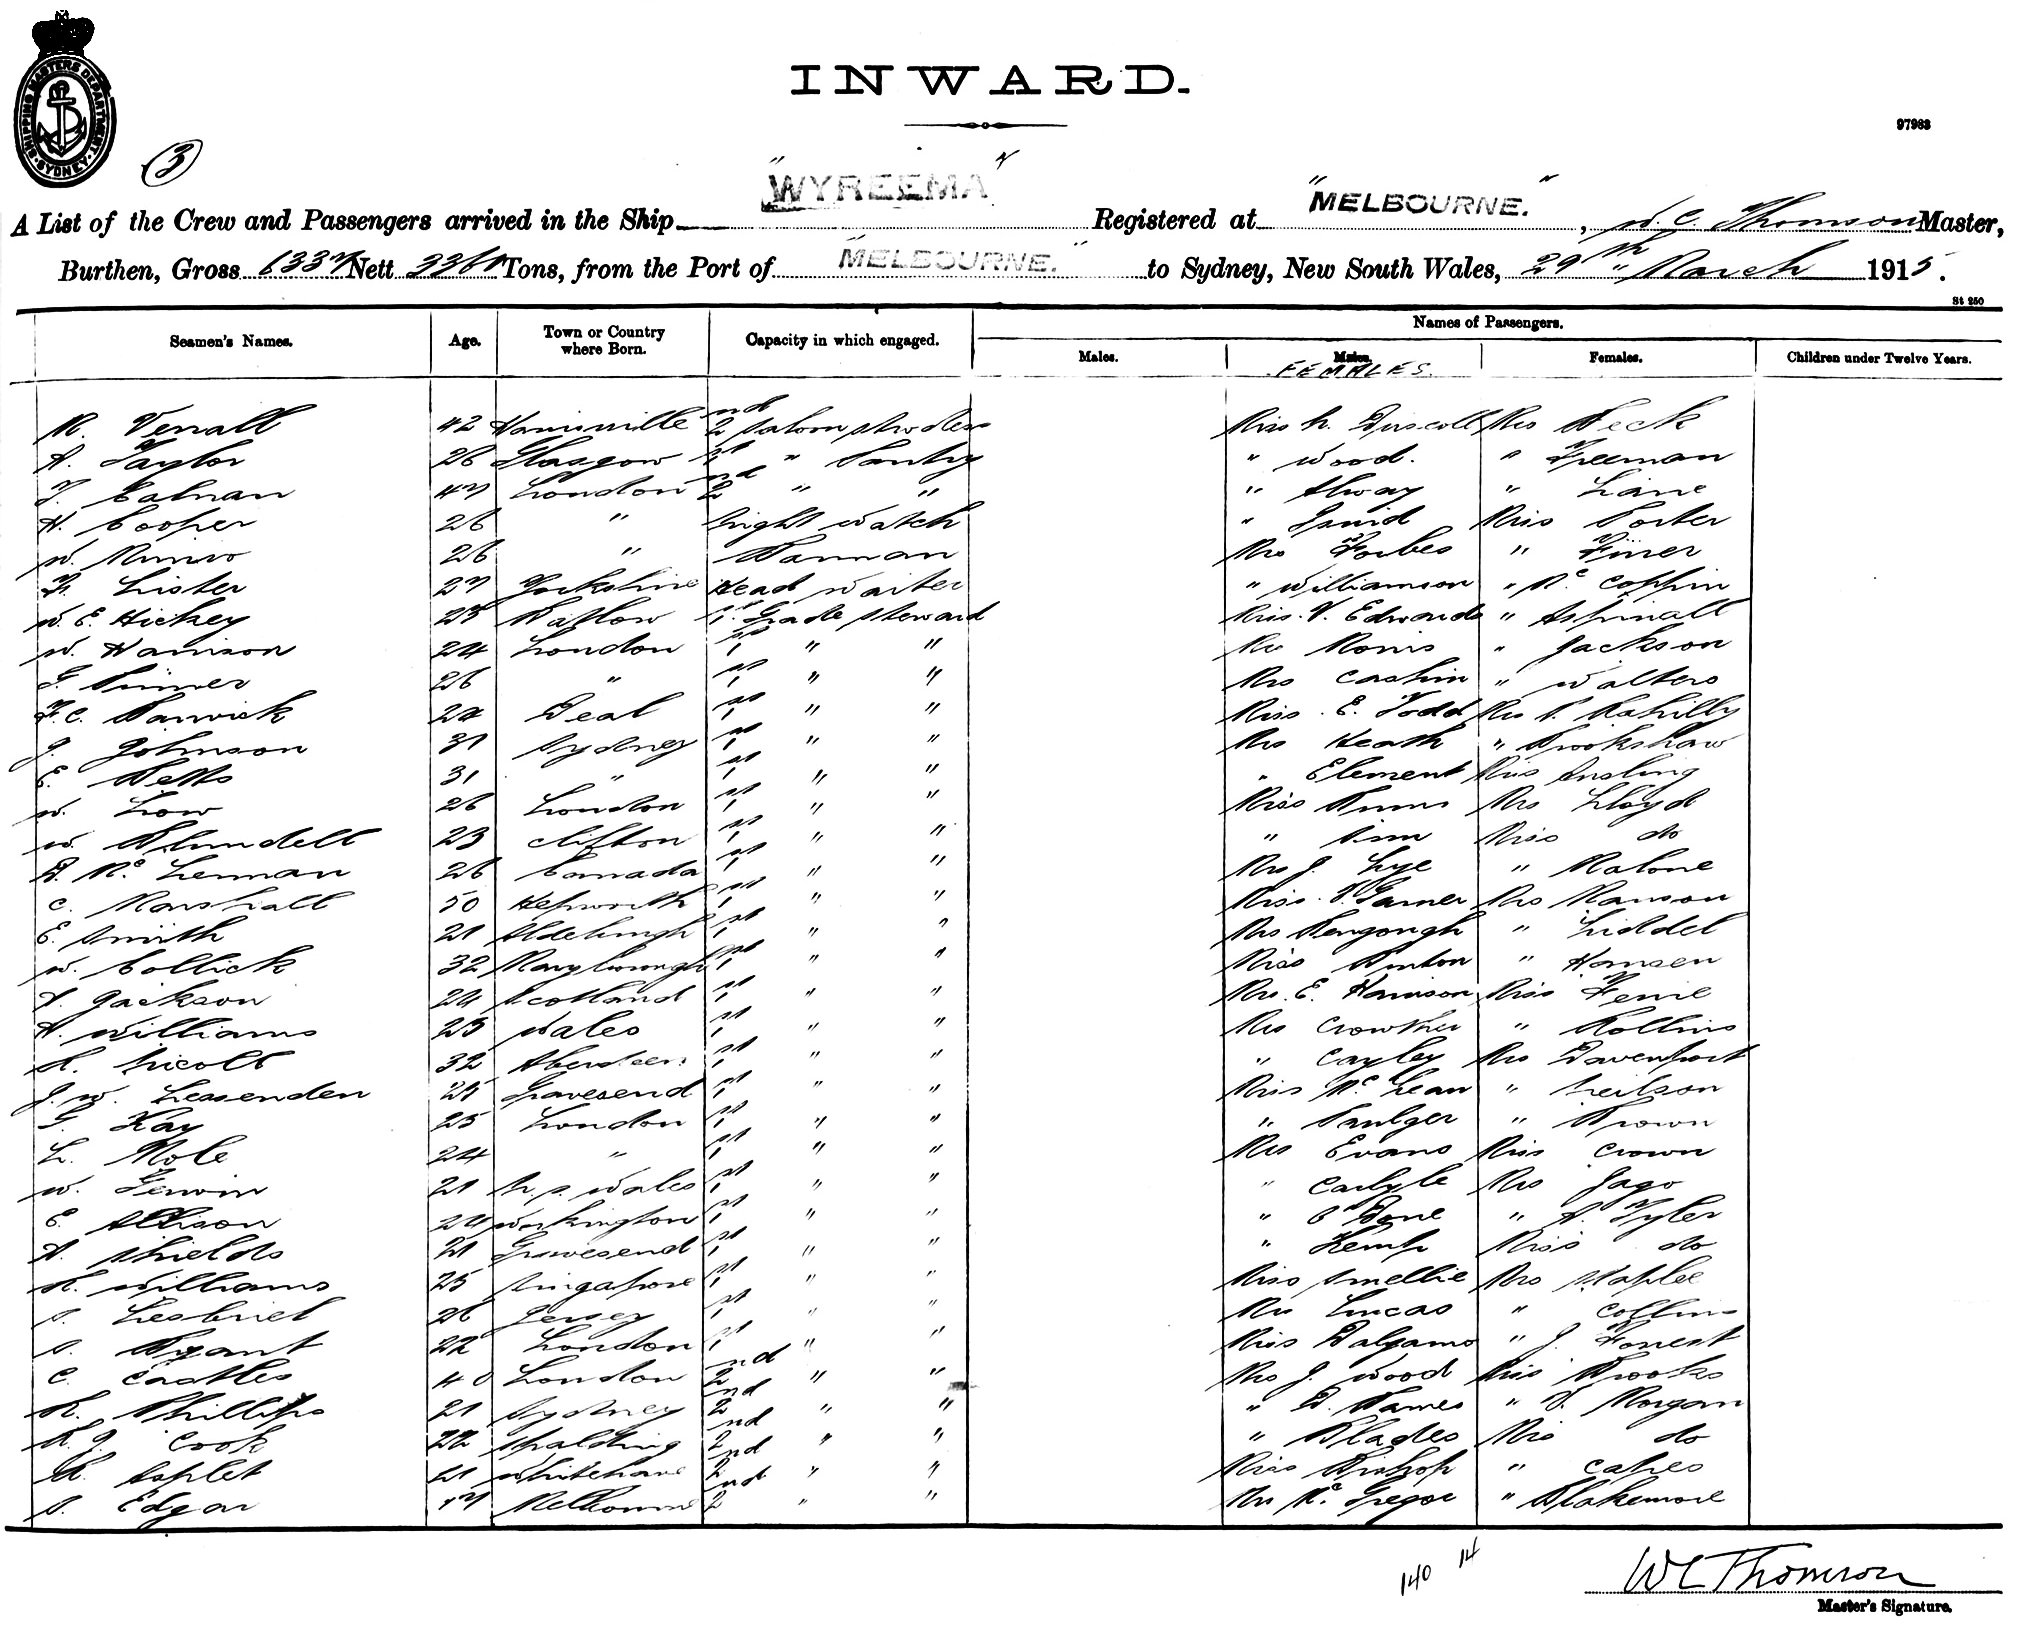 SHIPPING MASTERS DEPARTMENT. SYDNEY.
INWARD.
97983
3
A List of the Crew and Passengers arrived in the Ship "WYREEMA" Registered at "MELBOURNE.", W. C. Thomson Master,
Burthen, Gross 6337 Nett Tons, from the Port of "MELBOURNE." to Sydney, New South Wales, 29th March 1915.
St 250
Names of Passengers.
Seamen's Names. Age. Town or Country where Born. Capacity in which engaged. Males. Males. FEMALES. Females. Children under Twelve Years.
42 2nd Saloon Miss N. Driscoll Mrs Beck
A. Taylor 26 Glasgow 1st " Pantry " Wood. " Freeman
47 London 2nd " " " Alway " Lane
H. Cooper 26 " Night Watch " Miss Porter
W. Munro 26 " Barman Mrs Forbes "
F. Lister 27 Yorkshire Head Waiter " Williamson " Mc Coppin
W. E. Hickey 25 1st Grade Steward Miss. V. Edwards " Aspinall
W. Harrison 24 London 1st " " Mrs Morris " Jackson
26 " 1st " " Mrs Cashin " Walters
F. C. Barwick 24 Deal 1st " " Miss. E. Todd Mrs Rahilly
J. Johnson 31 Sydney 1st " " Mrs Heath " Brookshaw
E. Betts 31 " 1st " " " Element Miss
W. Low 26 London 1st " " Miss Mrs Lloyd
W. Blundell 23 Clifton 1st " " " Miss do
D. Mc Lennan 26 Canada 1st " " Mrs J. Lye " Malone
C. Marshall 50 Hepworth 1st " " Miss. V. Garner Mrs Manson
E. Smith 21 Aldeburgh 1st " " Mrs Bengough " Liddel
W. Collick 32 Maryborough 1st " " Miss " Hansen
A. Jackson 24 Scotland 1st " " Mrs. E. Harrison Miss
A. Williams 23 Wales 1st " " Mrs Crowther " Rollins
Nicoll 32 Aberdeen 1st " " " Cayley Mrs Davenport
J. W. Lessenden 25 Gravesend 1st " " Miss Mc Lean " Neilson
G. Kay 25 London 1st " " " " Brown
L. Mole 24 " 1st " " Mrs Evans Miss Crown
W. 21 N. S. Wales 1st " " " Carlyle Mrs Jago
E. Allison 24 Workington 1st " " " " A. Tyler
A. Shields 21 Gravesend 1st " " " Kemp Miss do
R. Williams 25 Singapore 1st " " Miss Smellie Mrs
S. 26 Jersey 1st " " Mrs Lucas " Collins
S. Bryant 22 London 1st " " Miss Dalgarno " J. Forrest
C. Castles 40 London 2nd " " Mrs J. Wood Miss Brooks
R. Phillips 21 Sydney 2nd " " " D. Barnes " V. Morgan
R. J. Cook 22 Spalding 2nd " " " Blades Miss do
R. Asplet 21 Whitehaven 2nd " " Miss Bishop " Capes
S. Edgar 17 Melbourne 2nd " " Mrs Mc Gregor " Blakemore
140 14
W C Thomson
Master's Signature.